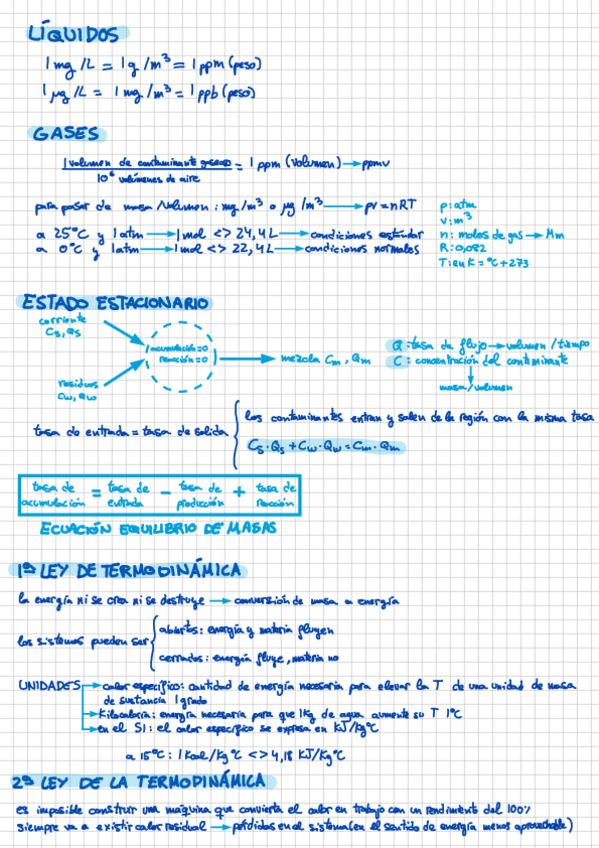 LÍQUIDOS
1 mg /L = 1 g /m³ = 1 ppm (peso)
1 µg /L = 1 mg /m³ = 1 ppb (peso)
GASES
1 volumen de contaminante gaseoso = 1 ppm (volumen) → ppmv
10⁶ volúmenes de aire
para pasar de masa /volumen : mg/m³ o µg /m³ → pv = nRT
a 25°C y 1 atm → 1 mol <> 24,4 L → condiciones estándar
a 0°C y 1 atm → 1 mol <> 22,4 L → condiciones normales
p: atm
v: m³
n: moles de gas → Mm
R: 0,082
T: en K = °C + 273
ESTADO ESTACIONARIO
corriente
Cs, Qs
acumulación = 0
reacción = 0
mezcla Cm , Qm
residuos
Cw, Qw
Q : tasa de flujo → volumen / tiempo
C : concentración del contaminante
masa / volumen
tasa de entrada = tasa de salida
los contaminantes entran y salen de la región con la misma tasa
Cs · Qs + Cw · Qw = Cm · Qm
tasa de acumulación = tasa de entrada − tasa de producción + tasa de reacción
ECUACIÓN EQUILIBRIO DE MASAS
1ª LEY DE TERMODINÁMICA
la energía ni se crea ni se destruye → conversión de masa a energía
los sistemas pueden ser
abiertos: energía y materia fluyen
cerrados: energía fluye, materia no
UNIDADES → calor específico: cantidad de energía necesaria para elevar la T de una unidad de masa
de sustancia 1 grado
→ Kilocaloría: energía necesaria para que 1 Kg de agua aumente su T 1°C
→ en el SI: el calor específico se expresa en KJ/Kg°C
a 15°C : 1 Kcal /Kg °C <> 4,18 KJ/Kg°C
2ª LEY DE LA TERMODINÁMICA
es imposible construir una máquina que convierta el calor en trabajo con un rendimiento del 100%
siempre va a existir calor residual → pérdidas en el sistema (en el sentido de energía menos aprovechable)